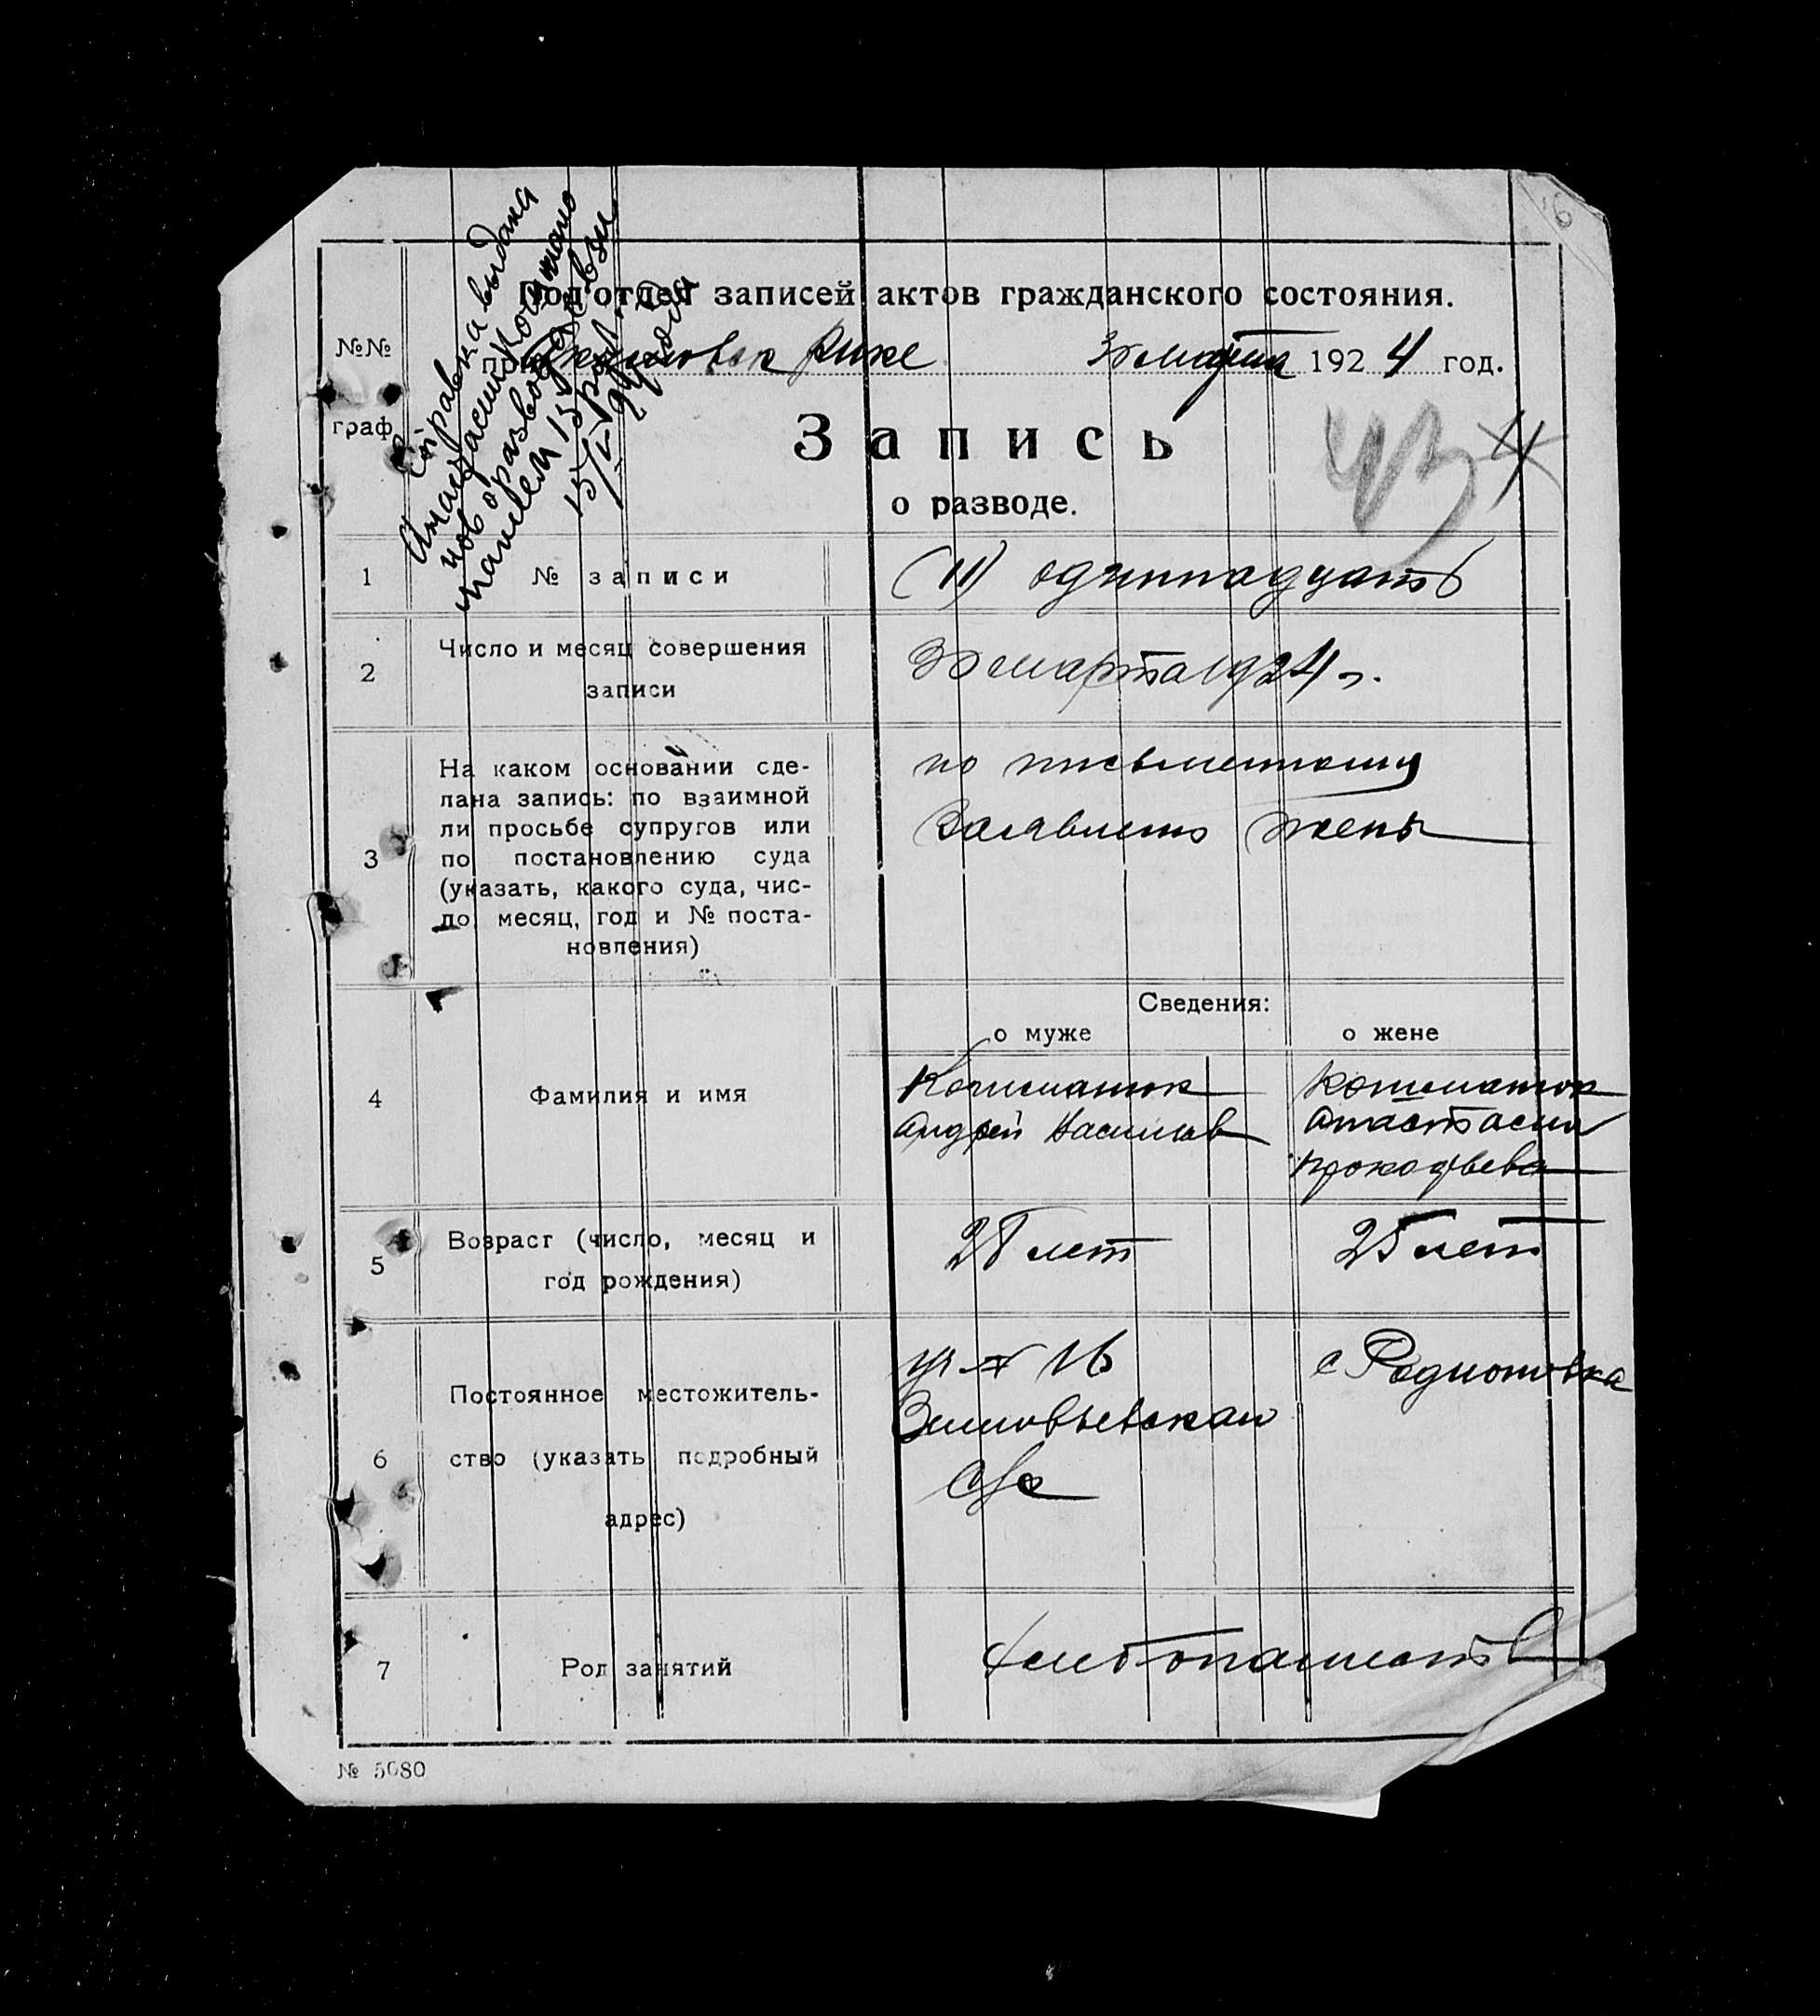 16
Подотдел записей актов гражданского состояния.
№№
при Рике 30 марта 1924 год.
граф
Справка выдана
о разводе
Запись
43
о разводе.
1 № записи (11) одиннадцать
2 Число и месяц совершения
записи
30 марта 1924 г.
3 На каком основании сде-
лана запись: по взаимной
ли просьбе супругов или
по постановлению суда
(указать, какого суда, чис-
ло, месяц, год и № поста-
новления)
по письменному
жены
Сведения:
о муже о жене
4 Фамилия и имя
Андрей Васильев
Анастасия
Прокофьева
5 Возраст (число, месяц и
год рождения)
28 лет 25 лет
6 Постоянное местожитель-
ство (указать подробный
адрес)
16
Зиновьевская
с/с
с Родионовка
7 Род занятий хлебопашеств
№ 5080